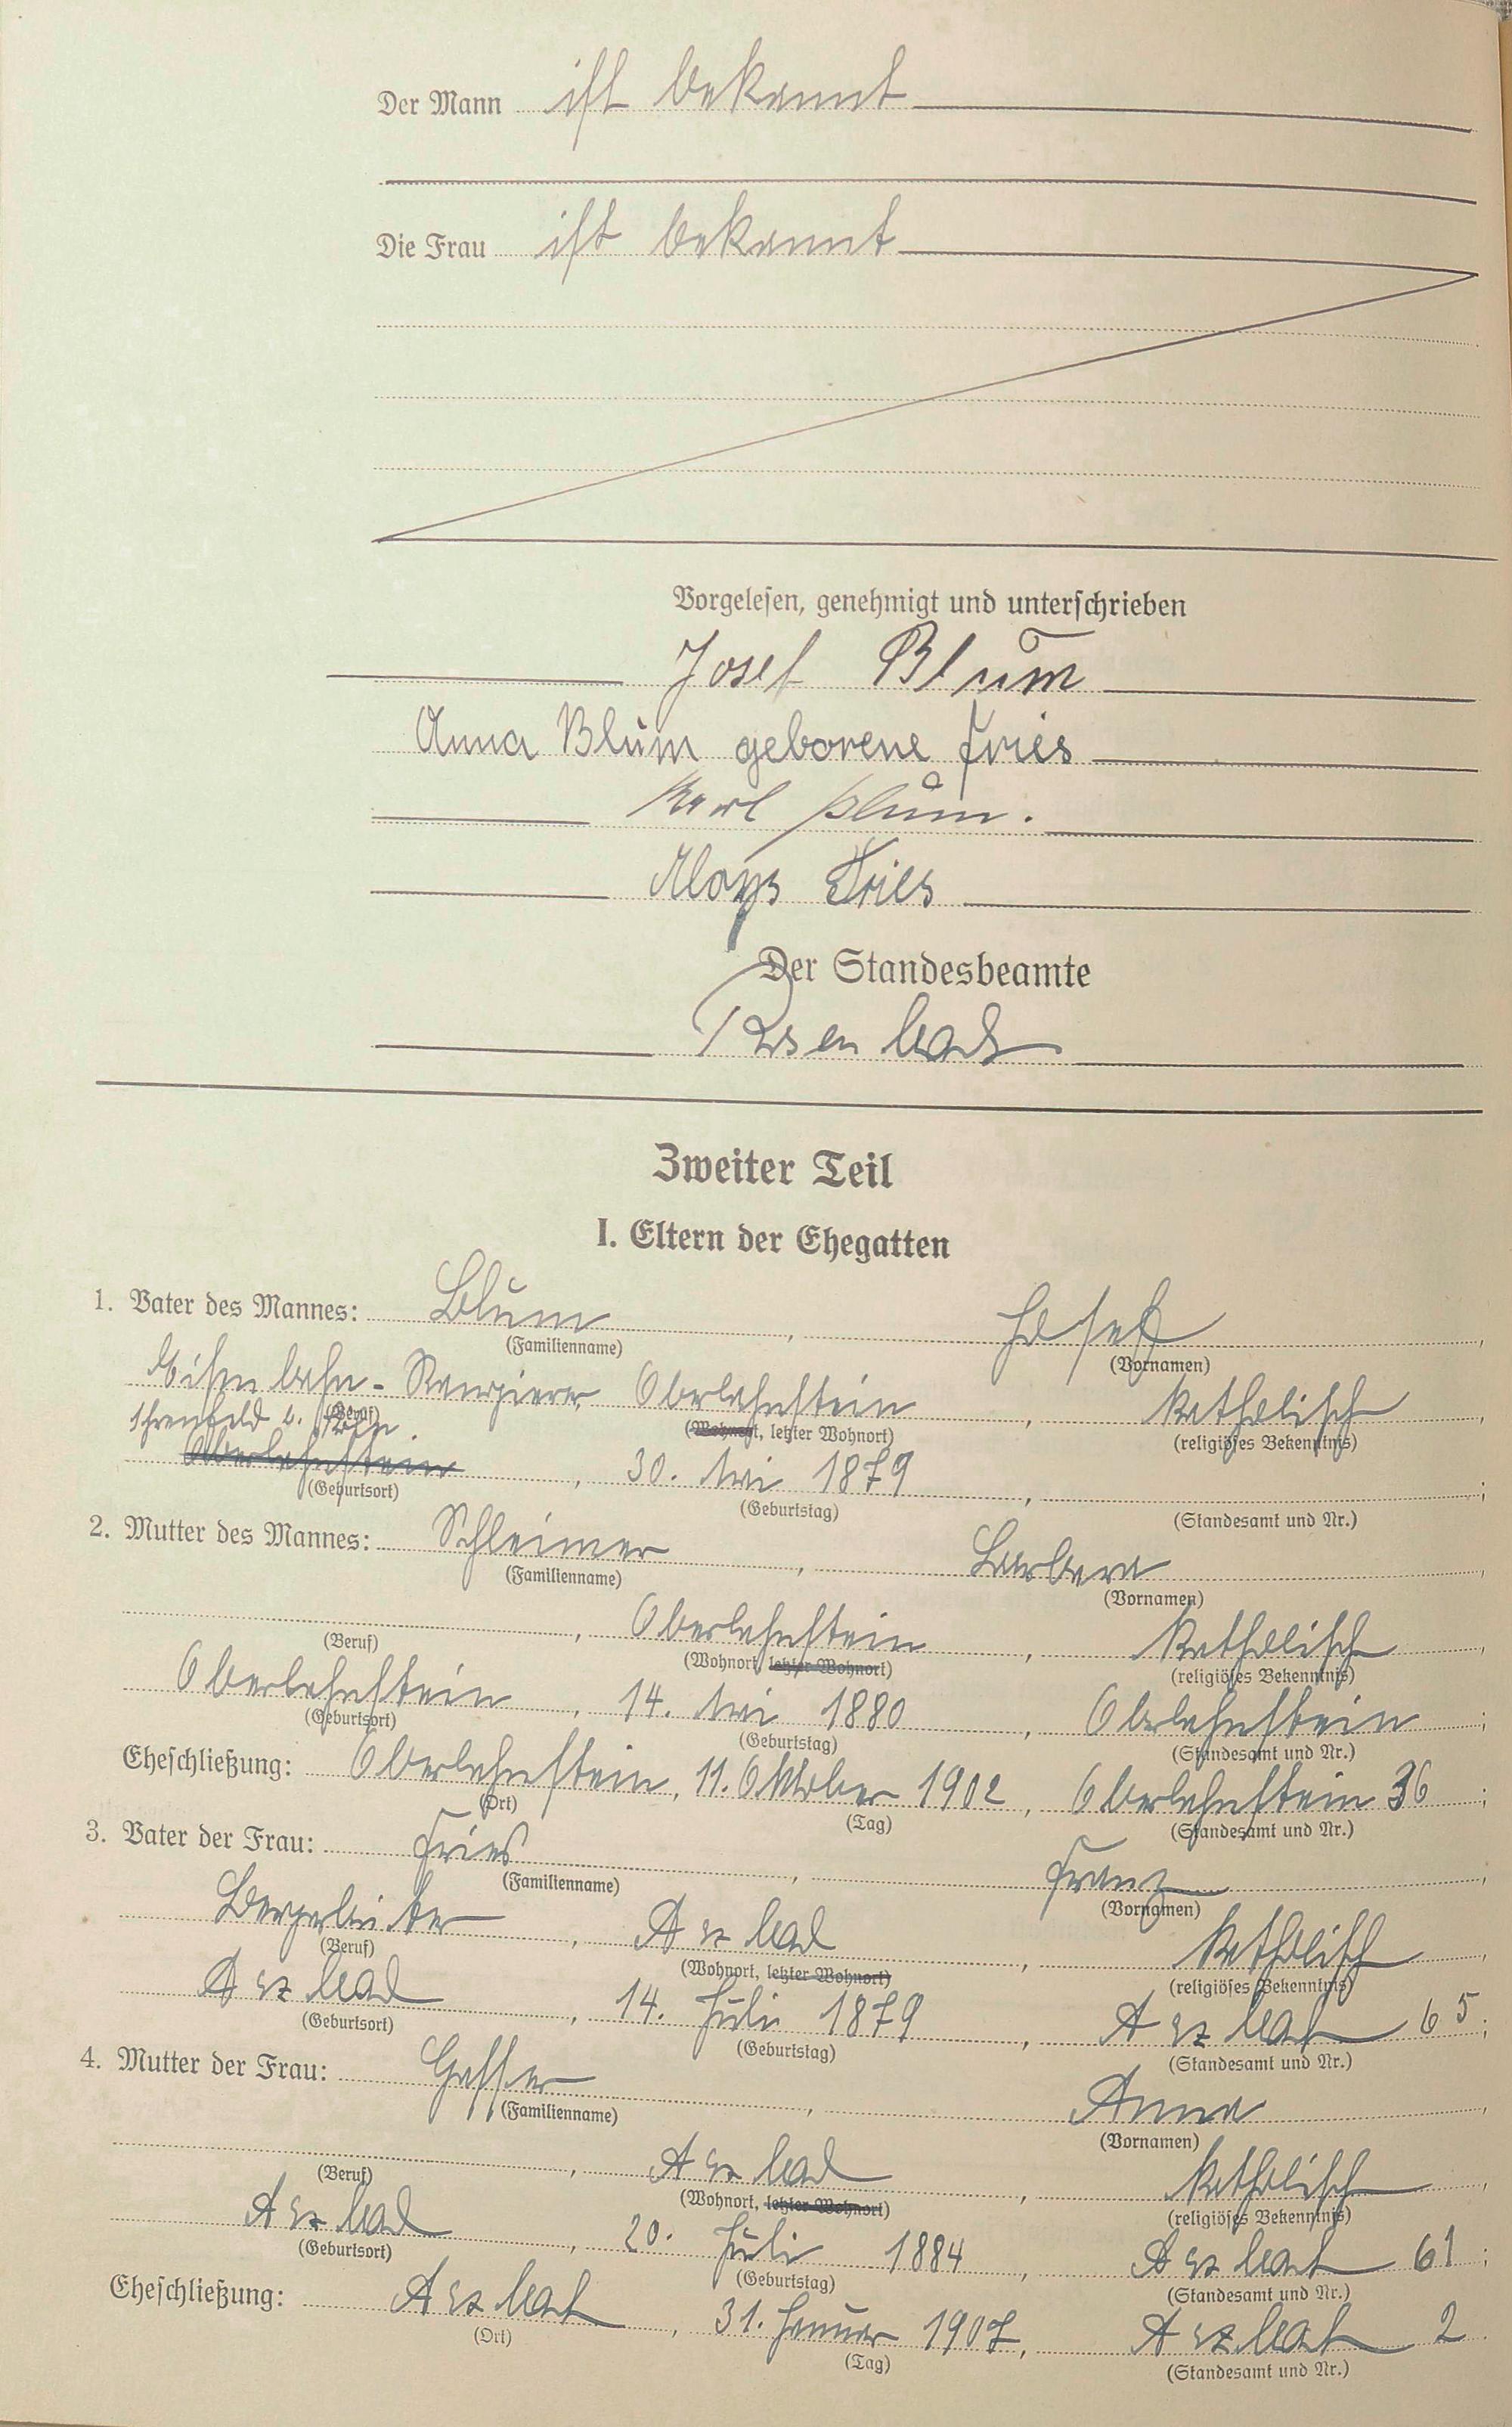 Der Mann ist bekannt
Die Frau ist bekannt
Vorgelesen, genehmigt und unterschrieben
Josef Blum
Anna Blum geborene Fries
Karl Blum.
Aloys Fries
Der Standesbeamte
Zweiter Teil
I. Eltern der Ehegatten
1. Vater des Mannes: Blum, Josef
(Familienname) (Vornamen)
Eisenbahn-Rangierer Oberlahnstein, katholisch,
(Beruf) (Wohnort, letzter Wohnort) (religiöses Bekenntnis)
Ehrenfeld b. Köln
Oberlahnstein, 30. Mai 1879, ;
(Geburtsort) (Geburtstag) (Standesamt und Nr.)
2. Mutter des Mannes: Schleimer, Barbara,
(Familienname) (Vornamen)
, Oberlahnstein, katholisch,
(Beruf) (Wohnort, letzter Wohnort) (religiöses Bekenntnis)
Oberlahnstein, 14. Mai 1880, Oberlahnstein ;
(Geburtsort) (Geburtstag) (Standesamt und Nr.)
Eheschließung: Oberlahnstein, 11. Oktober 1902, Oberlahnstein 36 ;
(Ort) (Tag) (Standesamt und Nr.)
3. Vater der Frau: Fries, Franz,
(Familienname) (Vornamen)
, Arzbach, katholisch,
(Beruf) (Wohnort, letzter Wohnort) (religiöses Bekenntnis)
Arzbach, 14. Juli 1879, Arzbach 65 ;
(Geburtsort) (Geburtstag) (Standesamt und Nr.)
4. Mutter der Frau: Anna,
(Familienname) (Vornamen)
, Arzbach, katholisch,
(Beruf) (Wohnort, letzter Wohnort) (religiöses Bekenntnis)
Arzbach, 20. Juli 1884, Arzbach 61 ;
(Geburtsort) (Geburtstag) (Standesamt und Nr.)
Eheschließung: Arzbach, 31. Januar 1907, Arzbach 2
(Ort) (Tag) (Standesamt und Nr.)